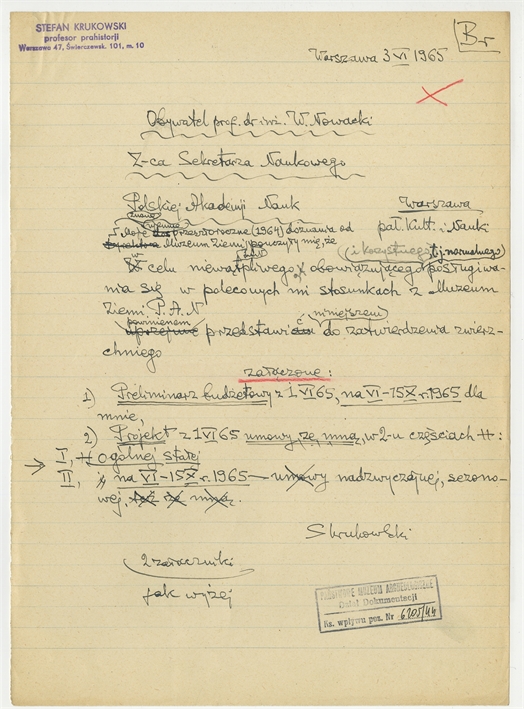 STEFAN KRUKOWSKI
profesor prahistorji
Warszawa 47, Świerczewsk. 101, m. 10
B-r
Warszawa 3 VI 1965
Obywatel prof. dr inż. W. Nowacki
Z-ca Sekretarza Naukowego
Polskiej Akademji Nauk
Warszawa
pał. Kult. i Nauki
Moje przeszłoroczne (1964) doznania od
Muzeum Ziemi pouczyły mię, że
(i korzystnego, tj. normalnego)
w celu niewątpliwego, obowiązującego posługiwa-
nia się w poleconych mi stosunkach z Muzeum
Ziemi P.A.N
powinienem niniejszem
uprzejmie przedstawić do zatwierdzenia zwierz-
chniego
załączone:
1) Preliminarz budżetowy z 1 VI 65, na VI-15X r. 1965 dla
mnie,
2) Projekt z 1 VI 65 umowy ze mną, w 2-u częściach:
I, ogólnej stałej
II, na VI-15X r. 1965 – umowy nadzwyczajnej, sezono-
wej, też ze mną.
SKrukowski
2 załączniki
jak wyżej
PAŃSTWOWE MUZEUM ARCHEOLOGICZNE
Dział Dokumentacji
Ks. wpływu poz. Nr 6205/44